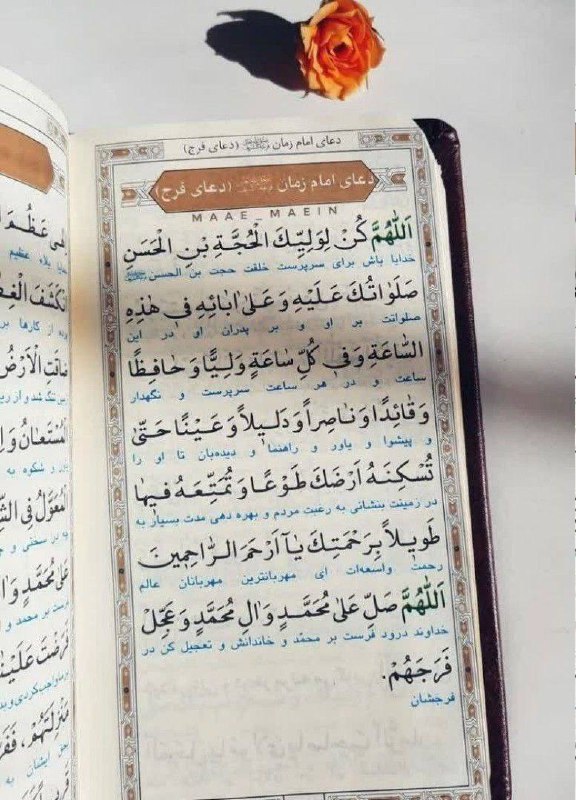 دعای امام زمان (دعای فرج)
دعای امام زمان (دعای فرج)
MAAE_MAEIN
اَللّٰهُمَّ كُنْ لِوَلِيِّكَ الْحُجَّةِ بْنِ الْحَسَنِ
خدایا باش برای سرپرست خلقت حجت بن الحسن
صَلَوَاتُكَ عَلَيْهِ وَ عَلىٰ اٰبَائِهِ فِي هٰذِهِ
صلواتت بر او و بر پدران او در این
السَّاعَةِ وَ فِي كُلِّ سَاعَةٍ وَلِيًّا وَ حَافِظًا
ساعت و در هر ساعت سرپرست و نگهدار
وَ قَائِدًا وَ نَاصِراً وَ دَلِيلاً وَ عَيْنًا حَتّىٰ
و پیشوا و یاور و راهنما و دیده‌بان تا او را
تُسْكِنَهُ أَرْضَكَ طَوْعًا وَ تُمَتِّعَهُ فِيهَا
در زمینت بنشانی به رغبت مردم و بهره دهی مدت بسیار به
طَوِيلاً بِرَحْمَتِكَ يَا أَرْحَمَ الرَّاحِمِينَ
رحمت واسعه‌ات ای مهربانترین مهربانان عالم
اَللّٰهُمَّ صَلِّ عَلىٰ مُحَمَّدٍ وَ اٰلِ مُحَمَّدٍ وَ عَجِّلْ
خداوند درود فرست بر محمد و خاندانش و تعجیل کن در
فَرَجَهُمْ.
فرجشان
عَظُمَ
بلاء عظیم
ضَاقَتِ الْاَرْضُ
الْمُسْتَعَانُ وَ
و شکوه به
الْمُعَوَّلُ فِي
در سختی و
عَلىٰ مُحَمَّدٍ وَ
بر محمد و
فَرَضْتَ عَلَيْنَا
مَنْزِلَتَهُمْ، فَفَرِّ
بحق ایشان به